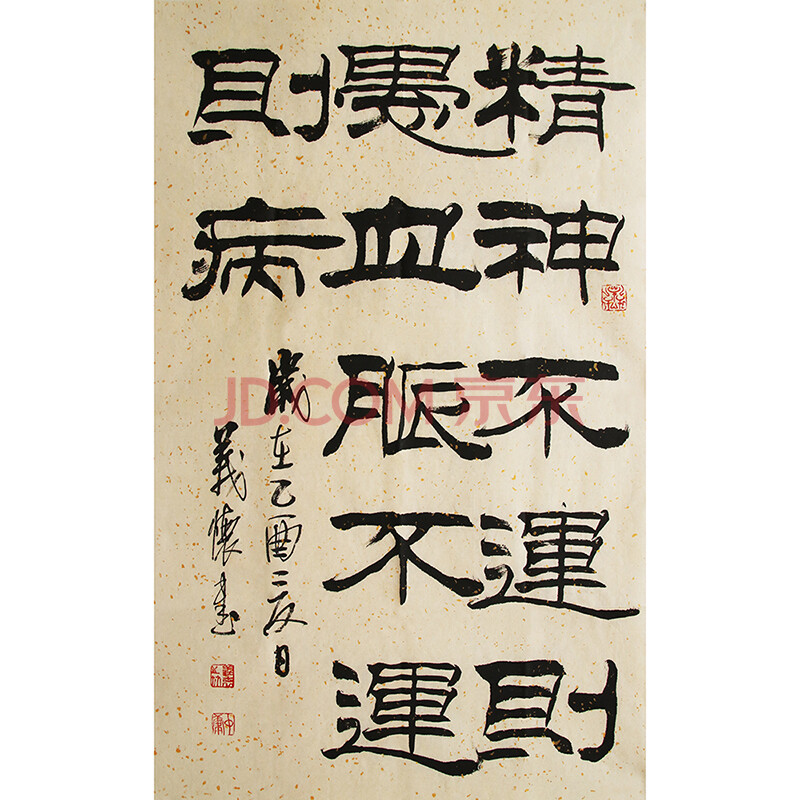 精神不運則
愚血脈不運
則病
歲在乙酉夏日
義懷書
JD.COM 京东